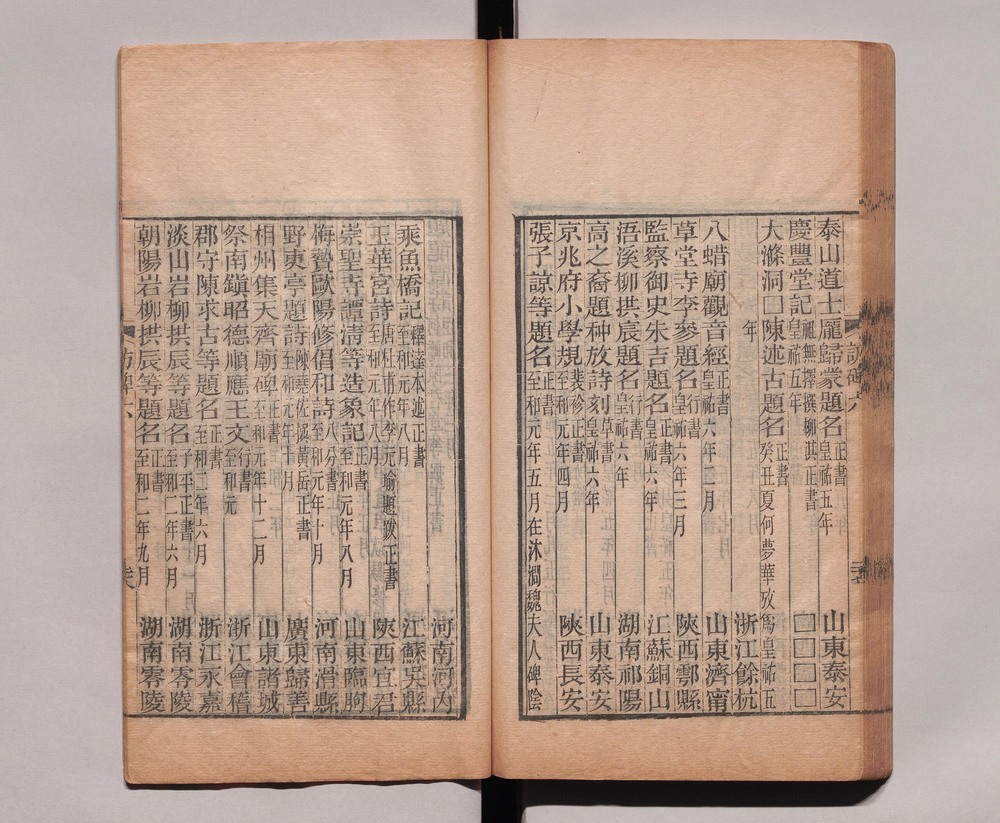 泰山道士龐歸蒙題名 正書 皇祐五年 山東泰安
慶豐堂記 祖無擇撰 柳淇正書 皇祐五年 □□□□
大滌洞□陳述古題名 正書 癸丑夏何夢華攷為皇祐五
年 浙江餘杭
八蜡廟觀音經 正書 皇祐六年二月 山東濟甯
草堂寺李參題名 行書 皇祐六年三月 陝西鄠縣
監察御史朱吉題名 正書 皇祐六年 江蘇銅山
浯溪柳拱宸題名 行書 皇祐六年 湖南祁陽
高之裔題种放詩刻 草書 皇祐六年 山東泰安
京兆府小學規 裴袗正書 至和元年四月 陝西長安
張子諒等題名 正書 至和元年五月在沐澗魏夫人碑陰
河南河內
乘魚橋記 釋達本述 正書 至和元年八月 江蘇吳縣
玉華宮詩 唐杜甫作 李元瑜題跋 正書 至和元年八月 陝西宜君
崇聖寺譚清等造象記 正書 至和元年八月 山東臨朐
梅贄歐陽修倡和詩 八分書 至和元年十月 河南滑縣
野吏亭題詩 陳堯佐撰 黃岳正書 至和元年十月 廣東歸善
相州集天齊廟碑 正書 至和元年十二月 山東諸城
祭南鎮昭德順應王文 行書 至和元 浙江會稽
郡守陳求古等題名 正書 至和二年六月 浙江永嘉
淡山岩柳拱辰等題名 子平正書 至和二年六月 湖南零陵
朝陽岩柳拱辰等題名 正書 至和二年九月 湖南零陵
訪碑六